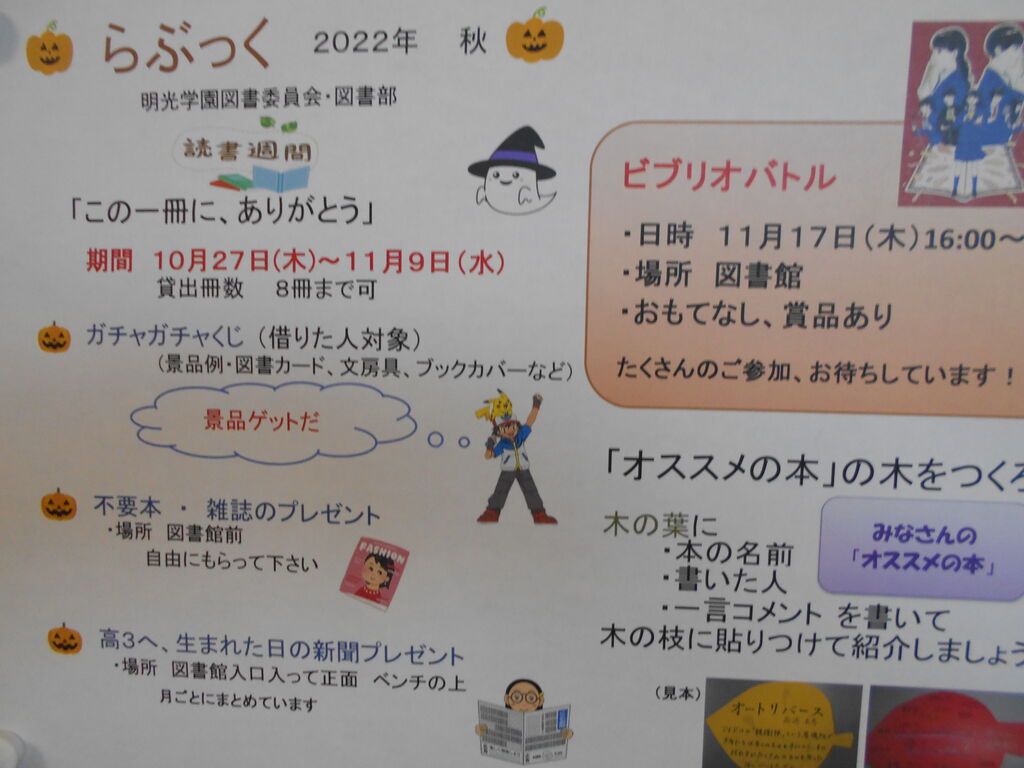 らぶっく 2022年 秋
明光学園図書委員会・図書部
読書週間
「この一冊に、ありがとう」
期間 10月27日(木)～11月9日(水)
貸出冊数 8冊まで可
ガチャガチャくじ (借りた人対象)
(景品例・図書カード、文房具、ブックカバーなど)
景品ゲットだ
不要本 ・ 雑誌のプレゼント
・場所 図書館前
自由にもらって下さい
FASHION
高3へ、生まれた日の新聞プレゼント
・場所 図書館入口入って正面 ベンチの上
月ごとにまとめています
ビブリオバトル
・日時 11月17日(木)16:00～
・場所 図書館
・おもてなし、賞品あり
たくさんのご参加、お待ちしています！
「オススメの本」の木をつくろ
木の葉に
・本の名前
・書いた人
・一言コメント を書いて
木の枝に貼りつけて紹介しましょう
みなさんの
「オススメの本」
(見本)
オートリバース